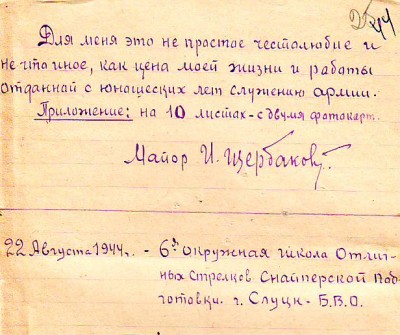 244
Для меня это не простое честолюбие и
не что иное, как цена моей жизни и работы
отданной с юношеских лет служению армии.
Приложение: на 10 листах - с двумя фотокарт.
Майор И. Щербаков.
22 Августа 1944 г. - 6ая окружная школа Отлич-
ных Стрелков Снайперской Под-
готовки. г. Слуцк - Б.В.О.